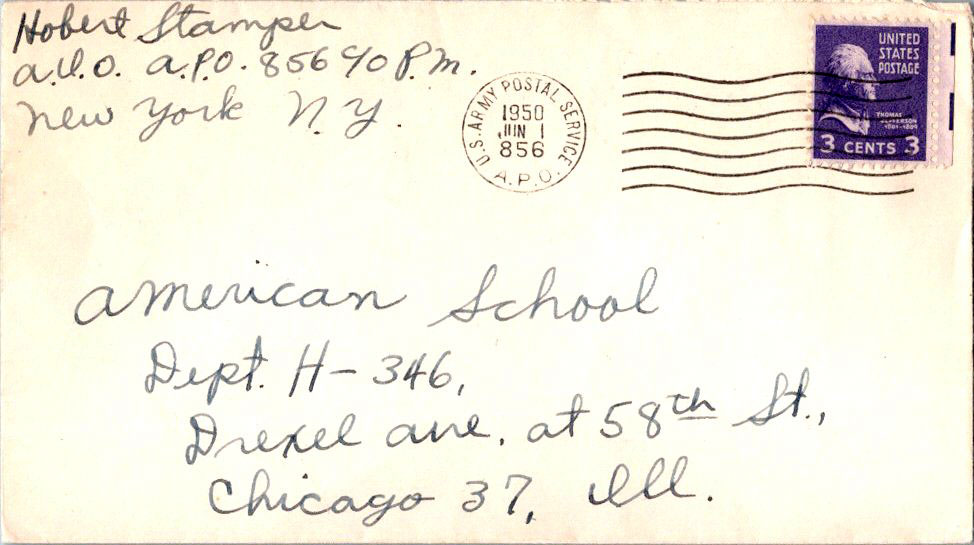 Hobert Stamper
A.U.O. A.P.O. 856 c/o P.M.
New York N.Y.
U.S. ARMY POSTAL SERVICE
1950
JUN 1
856
A.P.O.
UNITED
STATES
POSTAGE
THOMAS
JEFFERSON
1801-1809
3 CENTS 3
American School
Dept. H-346,
Drexel Ave. at 58th St.,
Chicago 37, Ill.